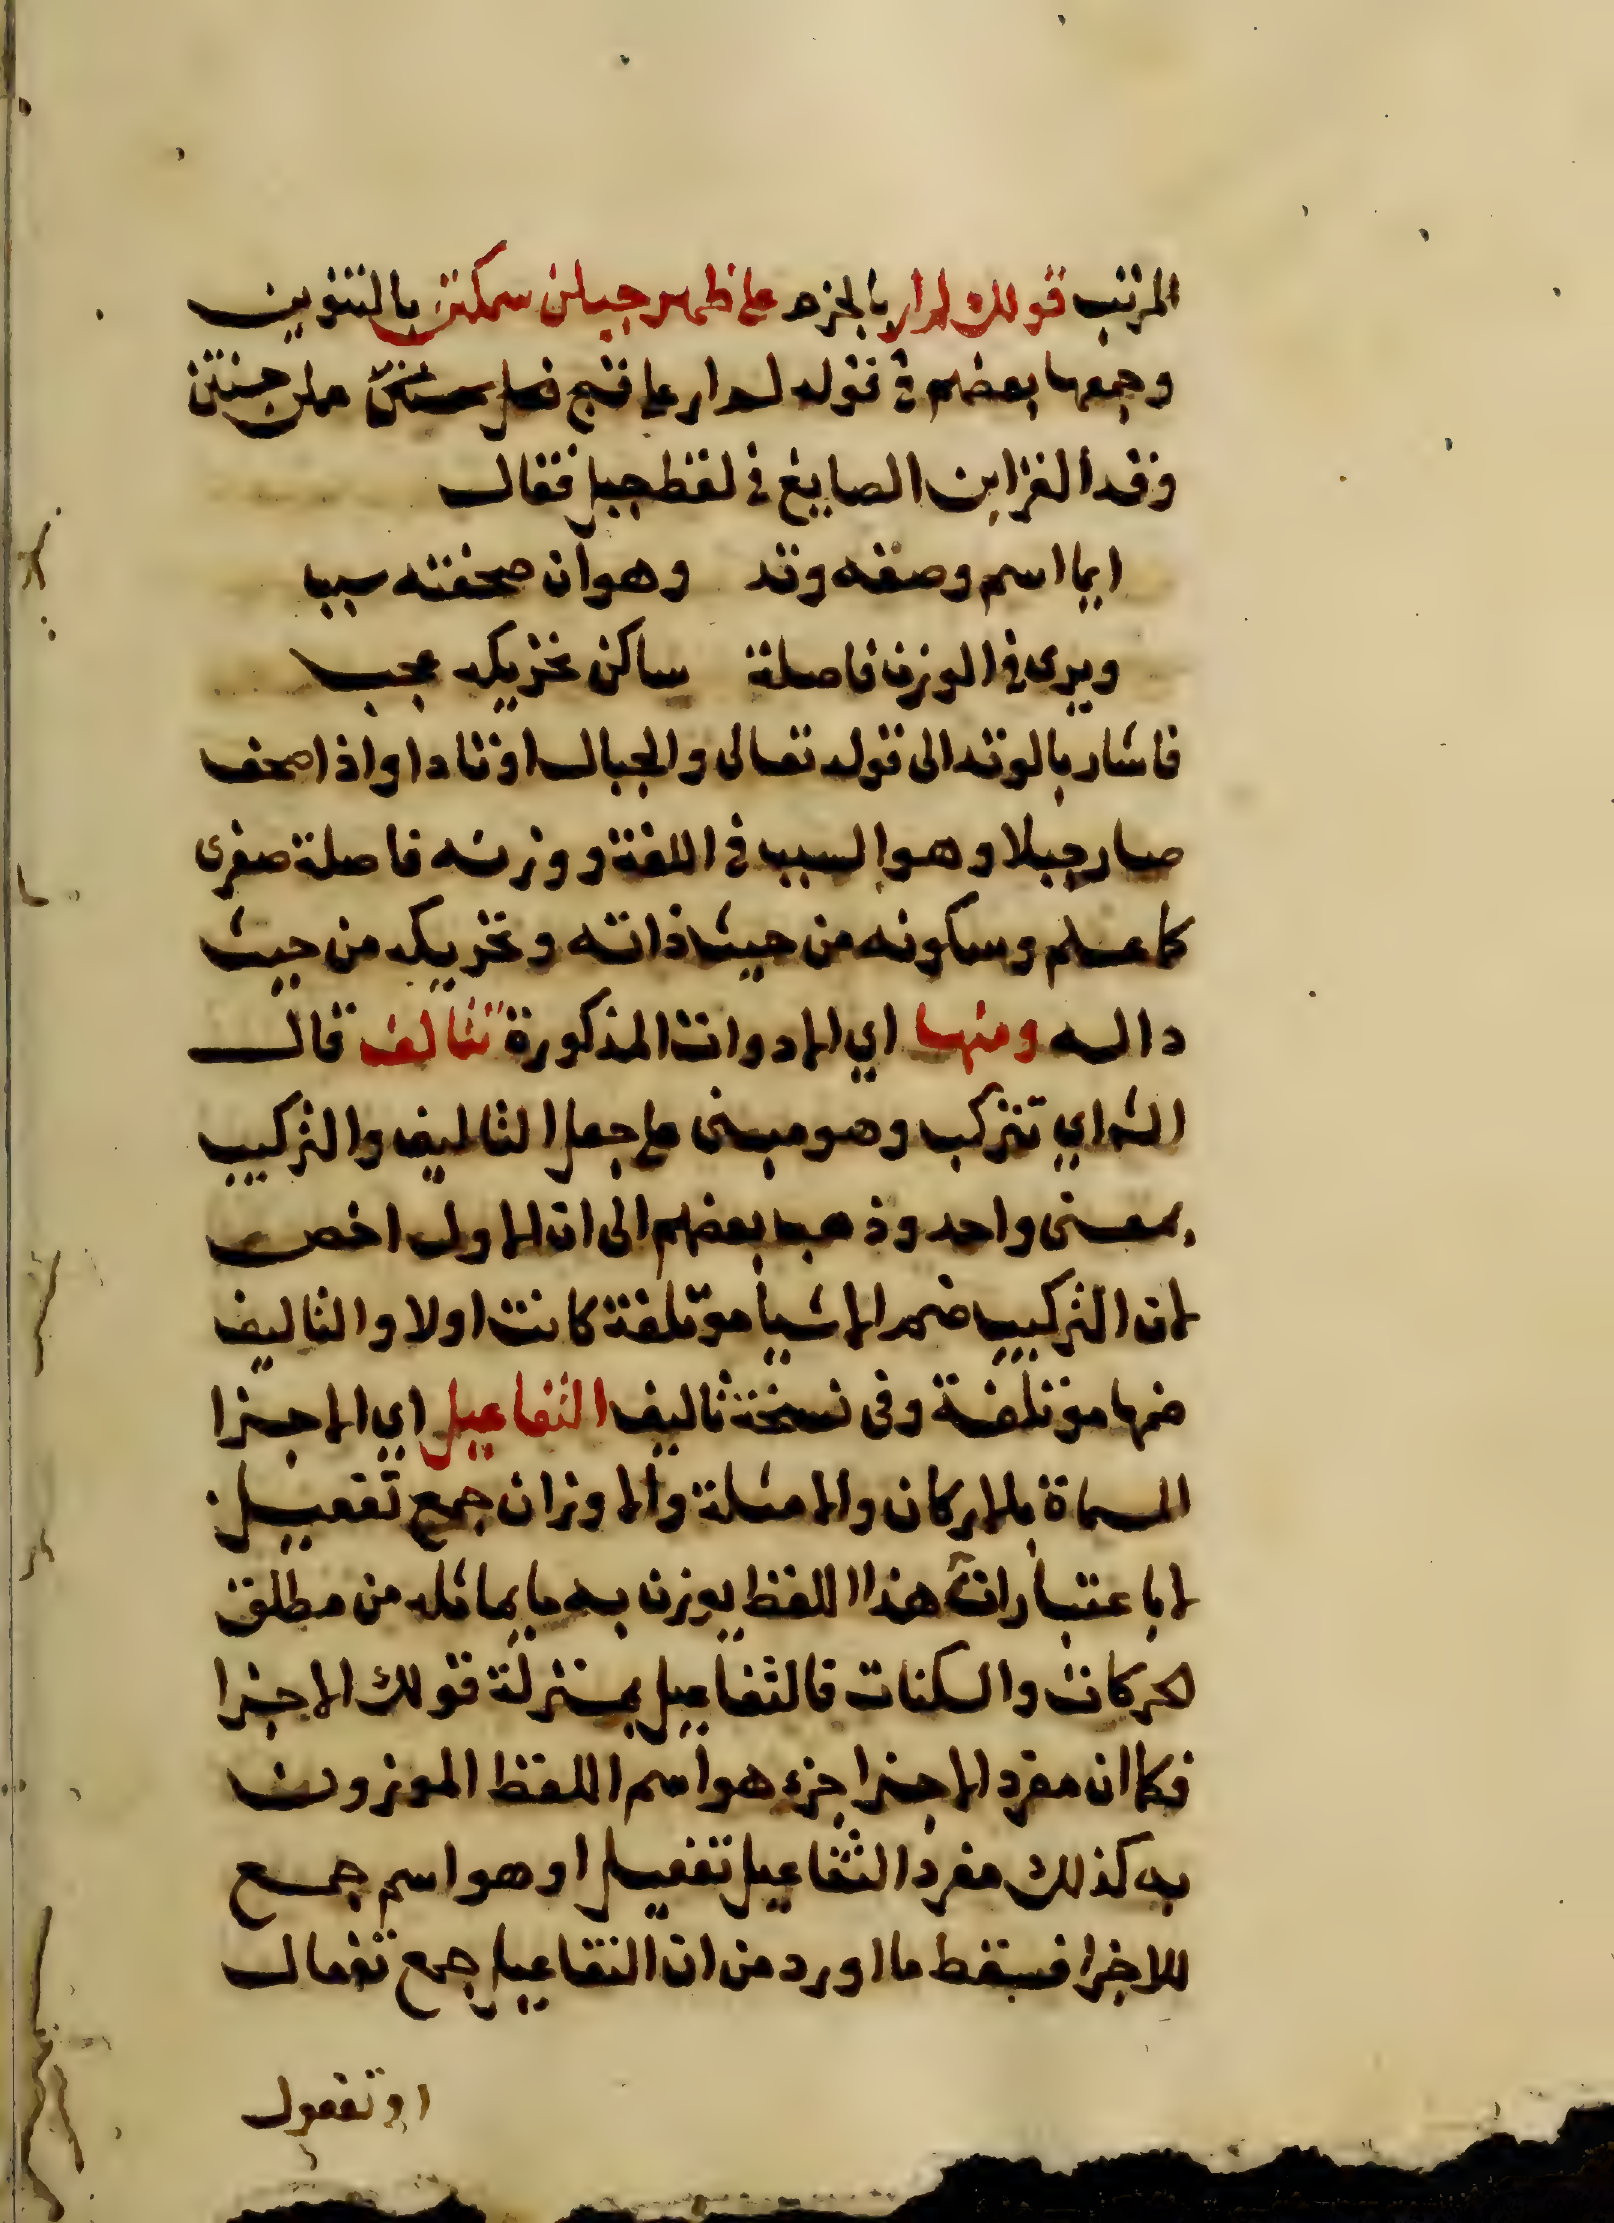 المرتب قولك لم ار بالجزم على ظهر جبلن سمكتن بالتنوين
وجمعها بعضهم في قوله لم ار على قبح فعل حسنتن عملن حسنتن
وقد الغز ابن الصايغ في لفظ جبل فقال
ايما اسم وصفه وتد وهو ان صحفته سببا
ويرى في الوزن فاصلة ساكن تحريكه عجب
فاشار بالوتد الى قوله تعالى والجبال اوتادا واذا صحف
صار حبلا وهو السبب في اللغة ووزنه فاصلة صغرى
كما علم وسكونه من حيث ذاته وتحريكه من حيث
داله ومنها اي الادوات المذكورة تتالف قال
الش اي تتركب وهو مبنى على جعل التاليف والتركيب
بمعنى واحد وذهب بعضهم الى ان الاول اخص
لان التركيب ضم الاشيا موتلفة كانت اولا والتاليف
ضمها موتلفة وفى نسخة تاليف التفاعيل اي الاجزا
المسماة بالاركان والامثلة والاوزان جمع تفعيل
لا باعتبار ان هذا اللفظ يوزن به ما يماثله من مطلق
الحركات والسكنات فالتفاعيل بمنزلة قولك الاجزا
فكما ان مفرد الاجزا جزء هو اسم اللفظ الموزون
به كذلك مفرد التفاعيل تفعيل او هو اسم جمع
للاجزا فسقط ما اورد من ان التفاعيل جمع تفعال
او تفعول